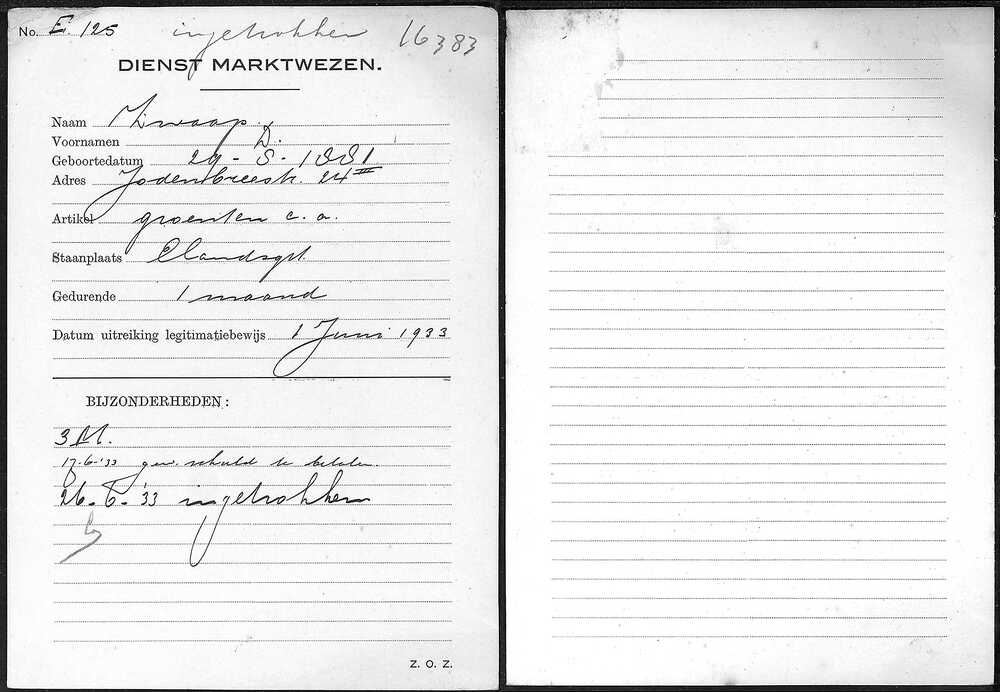 No. E. 125 ingetrokken 16383
DIENST MARKTWEZEN.
Naam Zwaap.
Voornamen D.
Geboortedatum 29 - 8 - 1881
Adres Jodenbreestr. 24 II
Artikel groenten c. a.
Staanplaats Elandsgrt.
Gedurende 1 maand
Datum uitreiking legitimatiebewijs 1 Juni 1933
BIJZONDERHEDEN:
3 M.
17-6-'33 gew. schuld te betalen.
26-6-'33 ingetrokken
Z. O. Z.